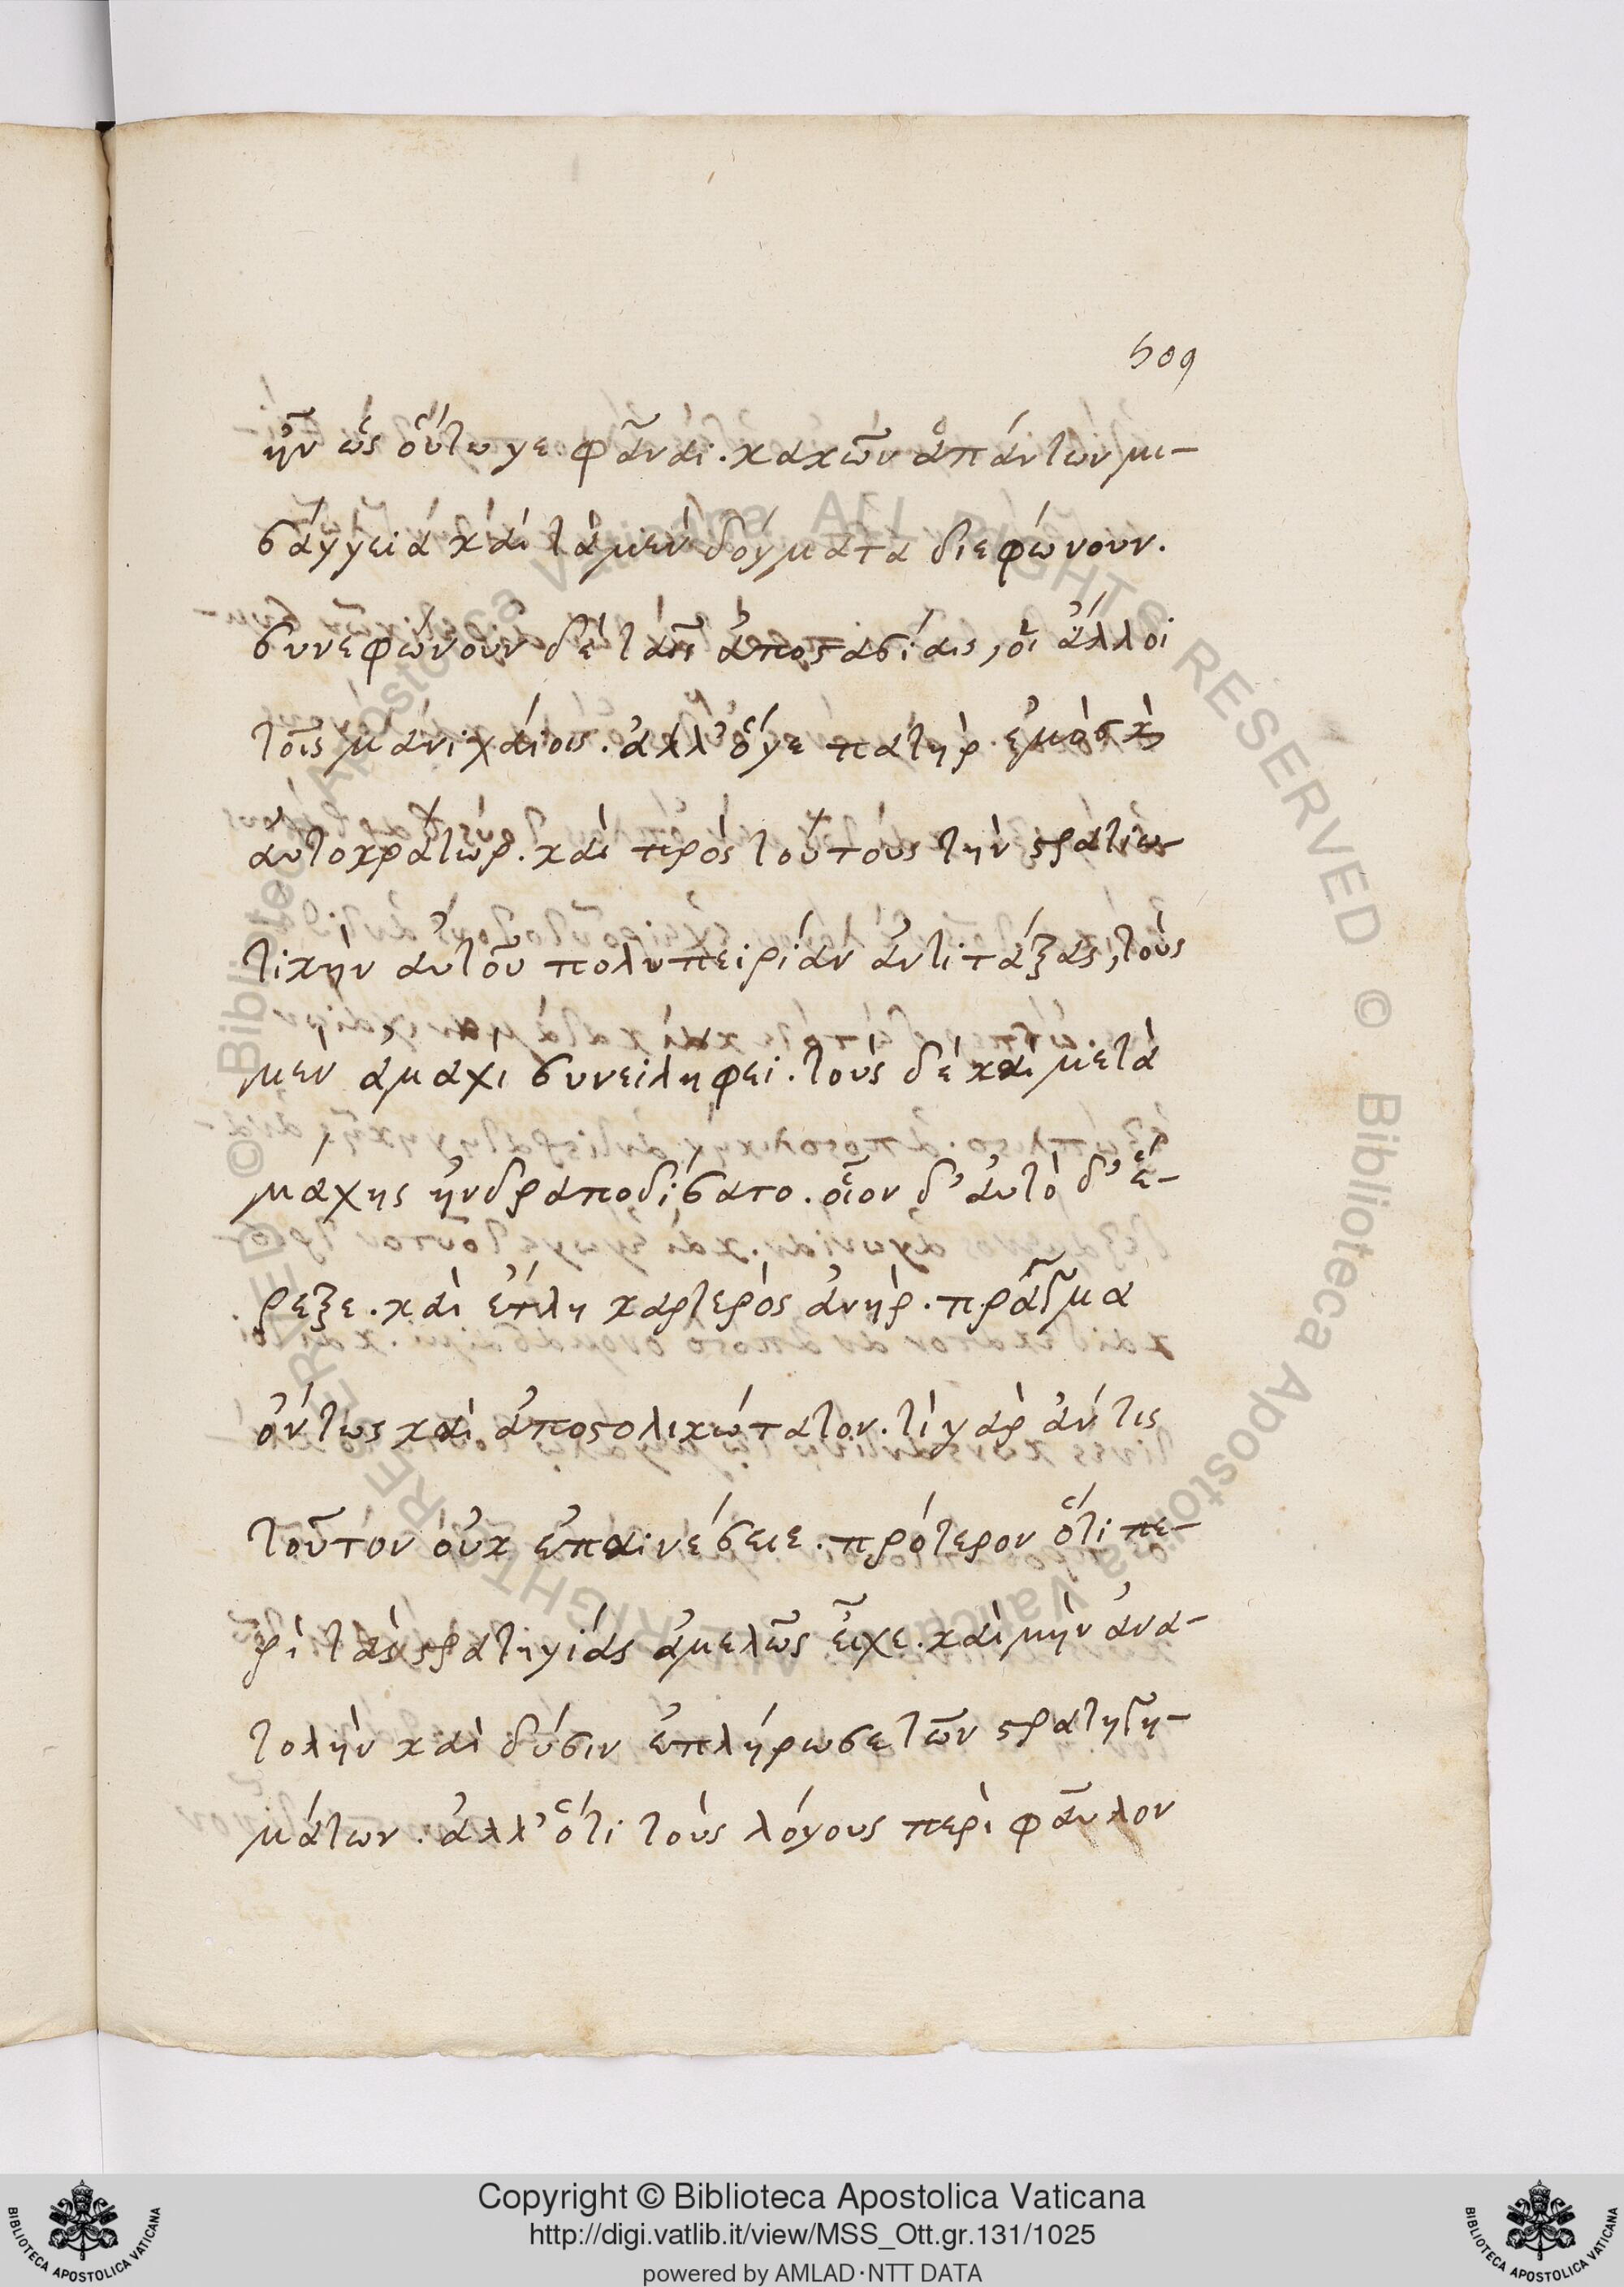 509
ἦν ὡς οὕτω γε φᾶναι. κακῶν ἁπάντων μι-
σάγγεια καὶ τὰ μὲν δόγματα διεφώνουν.
συνεφώνουν δὲ ταῖς ἀποστασίαις, οἱ ἄλλοι
τοῖς μανιχαίοις. ἀλλ' ὅγε πατὴρ ἐμὸς κὶ
αὐτοκράτωρ. καὶ πρὸς τούτους τὴν στρατιω-
τικὴν αὐτοῦ πολυπειρίαν ἀντιτάξας, τοὺς
μεν ἀμαχὶ συνειλήφει. τοὺς δὲ καὶ μετὰ
μάχης ἠνδραποδίσατο. οἷον δ' αὐτὸ δ' ἔ-
ρεξε. καὶ ἔτλη καρτερὸς ἀνήρ. πρᾶγμα
ὄντως καὶ ἀποστολικώτατον. τί γὰρ ἄν τις
τοῦτον οὐκ ἐπαινέσειε. πρότερον ὅτι πε-
ρὶ τὰς στρατηγίας ἀμελῶς εἶχε. καὶ μὴν ἀνα-
τολὴν καὶ δύσιν ἐπλήρωσε τῶν στρατηγη-
μάτων. ἀλλ' ὅτι τοὺς λόγους περὶ φαῦλον
Copyright © Biblioteca Apostolica Vaticana
http://digi.vatlib.it/view/MSS_Ott.gr.131/1025
powered by AMLAD·NTT DATA
BIBLIOTECA APOSTOLICA VATICANA
BIBLIOTECA APOSTOLICA VATICANA
© Biblioteca Apostolica Vaticana ALL RIGHTS RESERVED © Biblioteca Apostolica Vaticana ALL RIGHTS RESERVED